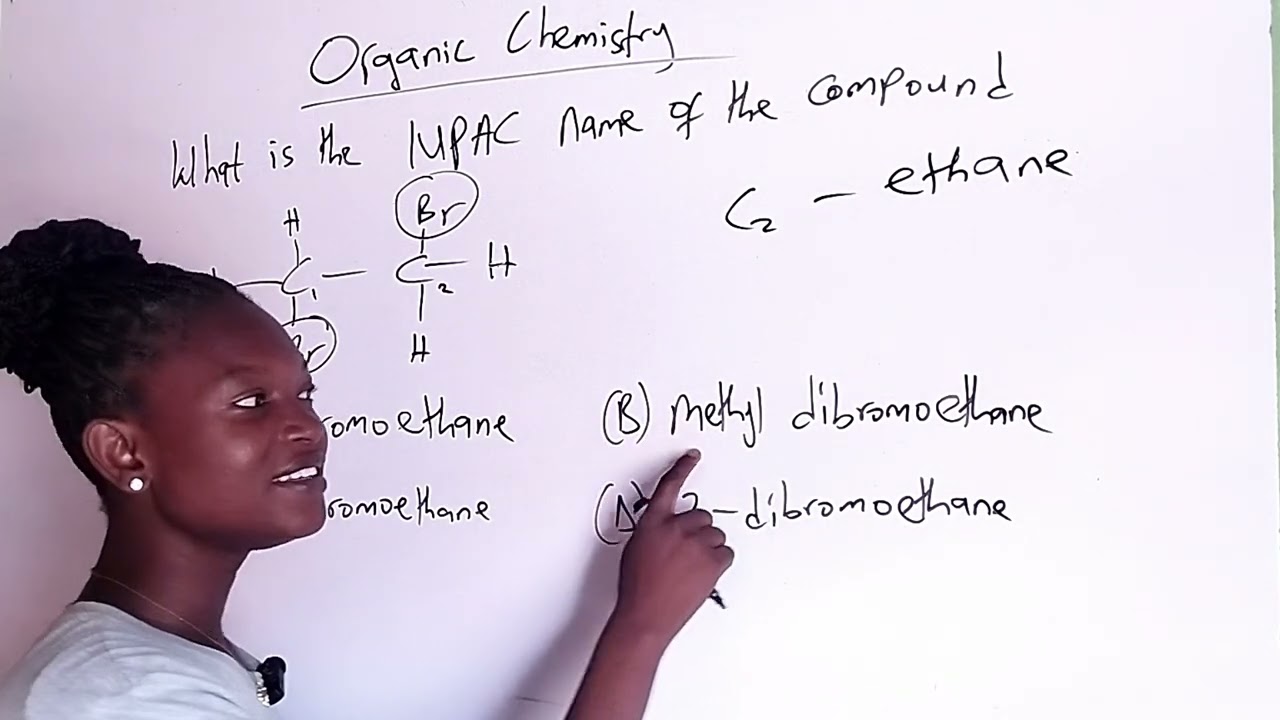 Organic Chemistry
What is the IUPAC name of the compound
C2 - ethane
H Br
C1 - C2 - H
Br H
omoethane (B) Methyl dibromoethane
bromoethane -dibromoethane